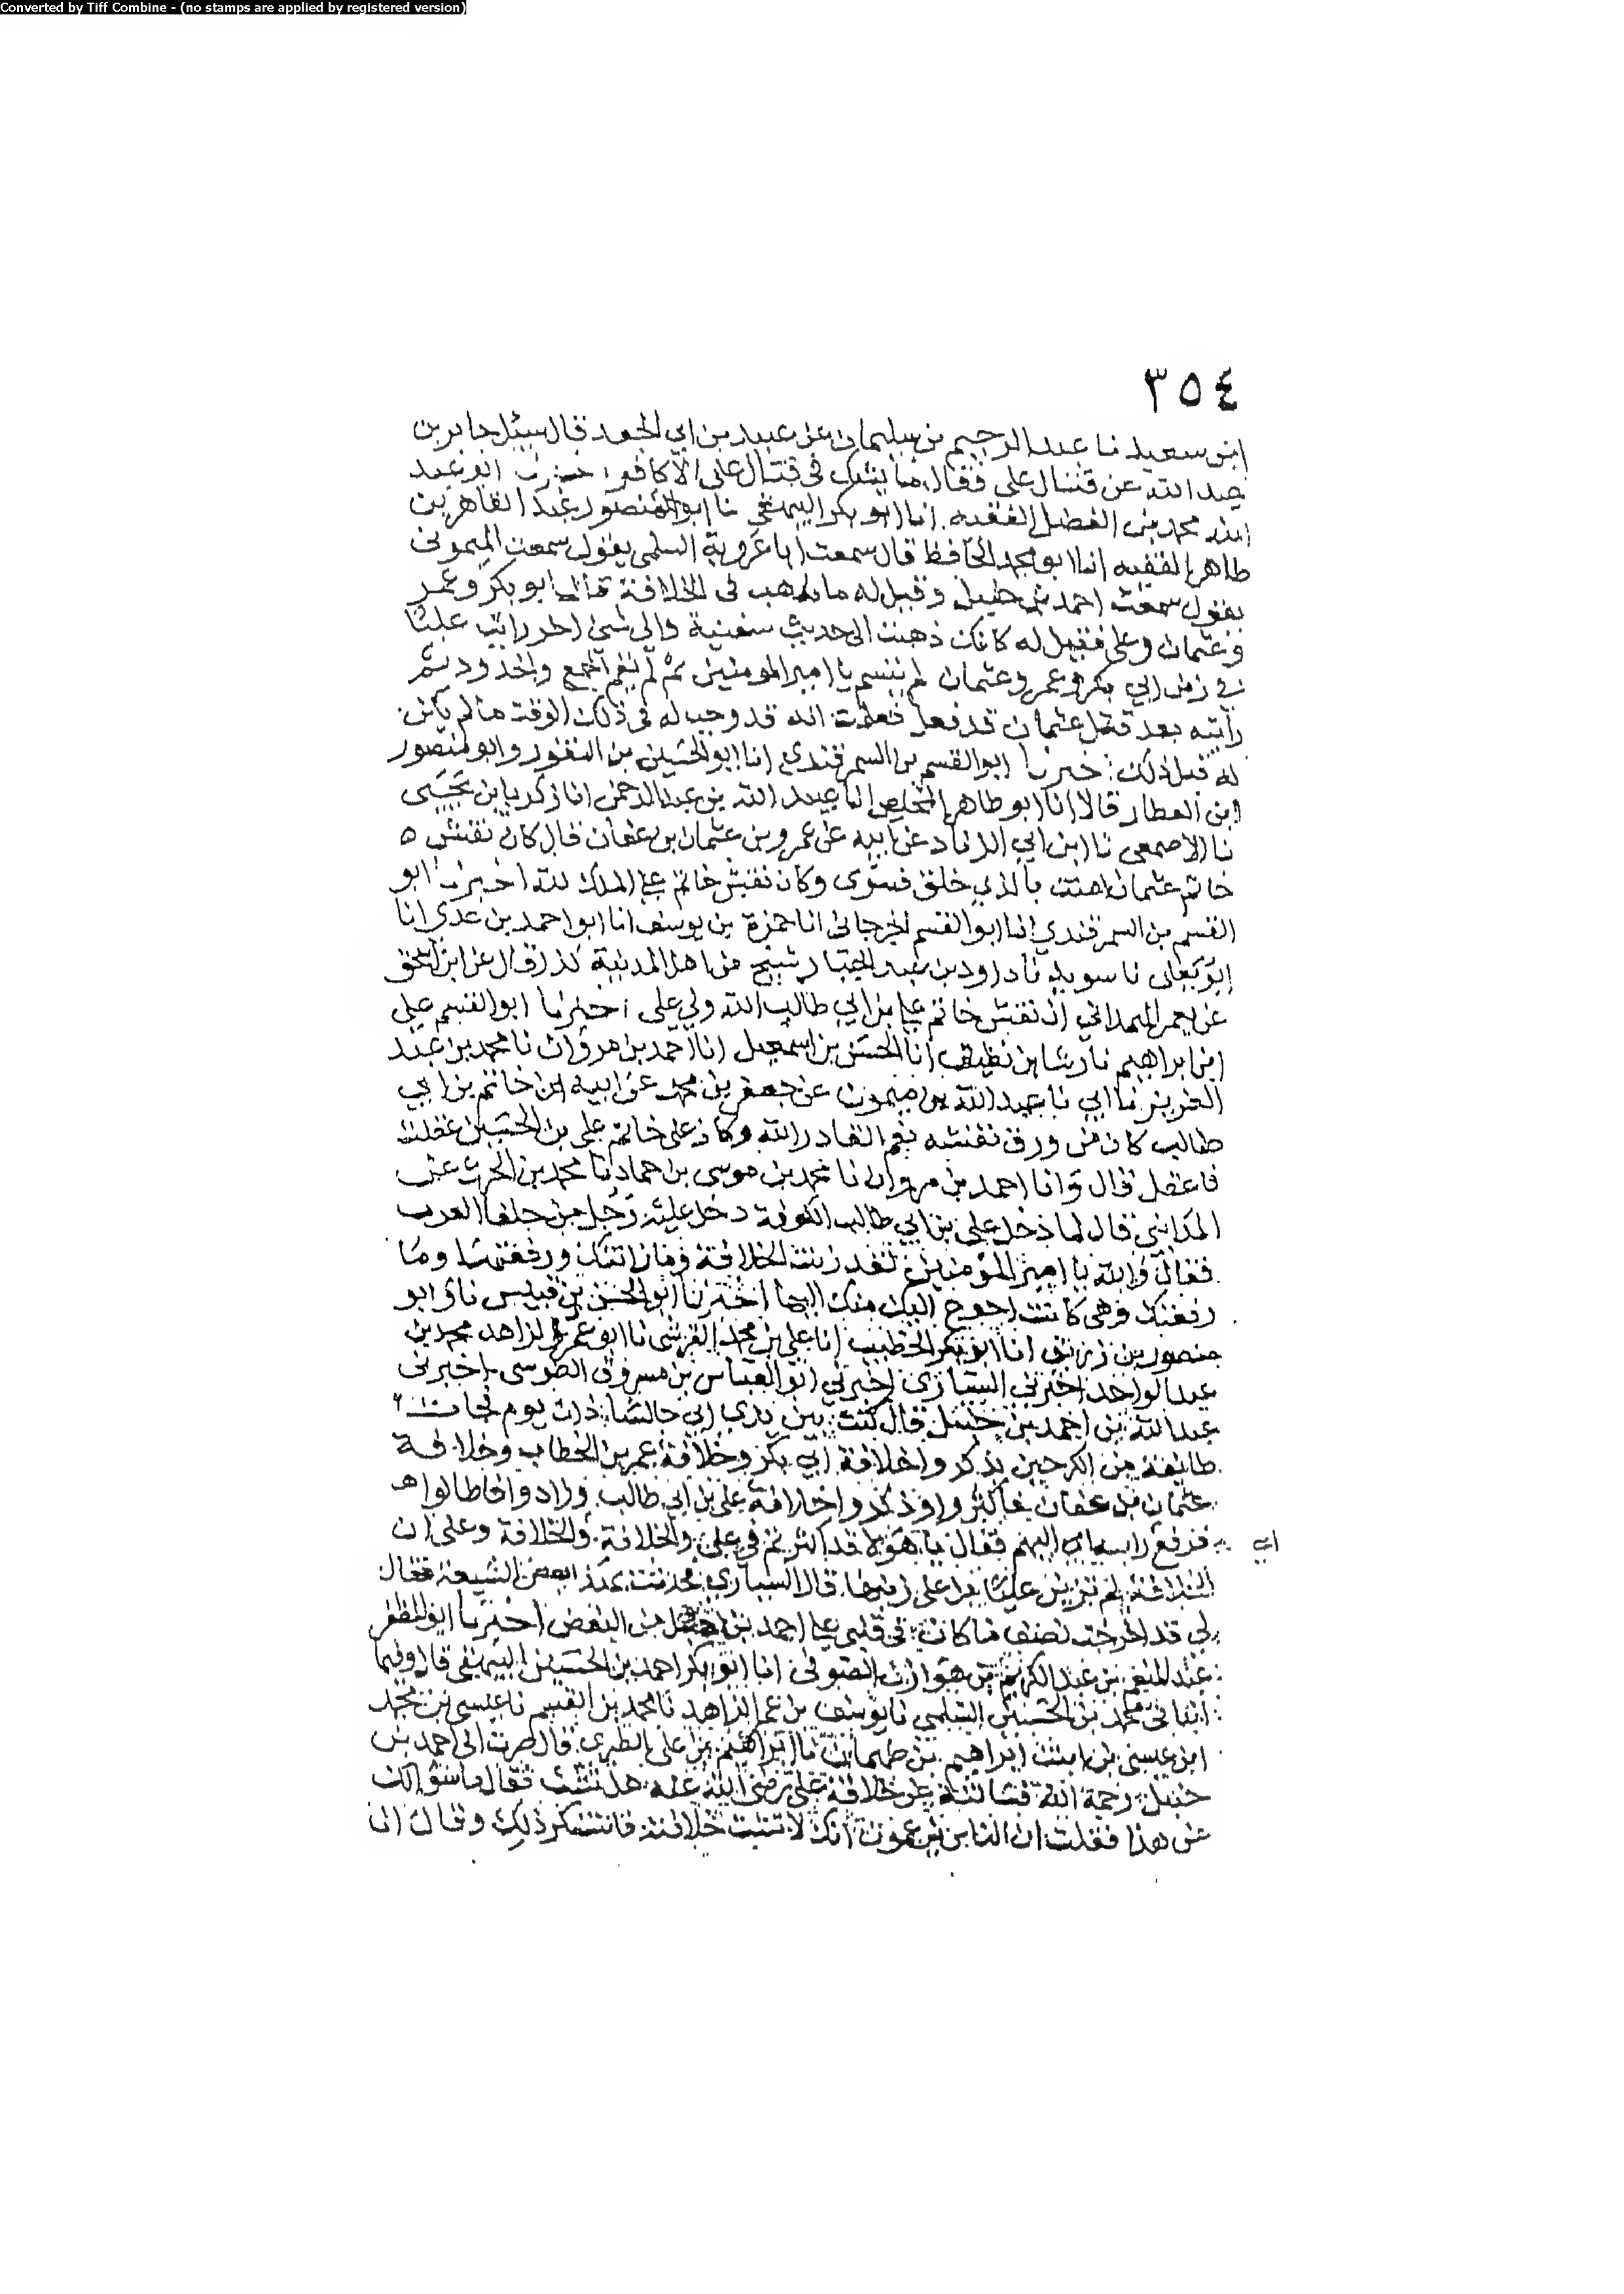 Converted by Tiff Combine - (no stamps are applied by registered version)
٣٥٤
ابن سعيد نا عبد الرحيم بن سليمان عن عبيد بن ابي الجعد قال سئل جابر بن
عبد الله عن قتال على فقال ما يشك في قتال على الا كافر اخبرنا ابو عبد
الله محمد بن الفضل الفقيه انا ابو بكر البيهقي نا ابو منصور عبد القاهر بن
طاهر الفقيه انا ابو محمد الحافظ قال سمعت ابا عروبة السلمى يقول سمعت الميمونى
يقول سمعت احمد بن حنبل وقيل له ما تذهب في الخلافة قال ابو بكر وعمر
وعثمان وعلى فقيل له كانك ذهبت الى حديث سفينة والى شئ اخر رايت عليا
في زمن ابي بكر وعمر وعثمان لم يتسم يا امير المومنين ثم لم يقم الجمع والحدود ثم
رايته بعد قتل عثمان قد فعل فعلمت انه قد وجب له في ذلك الوقت ما لم يكن
له قبل ذلك اخبرنا ابو القسم بن السمرقندي انا ابو الحسين بن النقور وابو منصور
ابن العطار قالا انا ابو طاهر المخلص انا عبيد الله بن عبد الرحمن انا زكريا بن يحيى
نا الاصمعى نا ابن ابي الزناد عن ابيه عن عمرو بن عثمان بن عفان قال كان نقش
خاتم عثمان امنت بالذي خلق فسوى وكان نقش خاتم على الملك لله اخبرنا ابو
القسم بن السمرقندي انا ابو القسم الجرجانى انا حمزة بن يوسف انا ابو احمد بن عدى انا
ابو يعلى نا سويد نا داود بن عبد الجبار شيخ من اهل المدينة كذا قال عن ابي اسحق
عن يعمر الهمدانى ان نقش خاتم على بن ابي طالب الله ولي على اخبرنا ابو القسم على
ابن ابراهيم نا رشا بن نظيف انا الحسن بن اسمعيل انا احمد بن مروان نا محمد بن عبد
العزيز نا ابي نا عبد الله بن ميمون عن جعفر بن محمد عن ابيه ان خاتم بن ابي
طالب كان من ورق نقشه نعم القادر الله وكان على خاتم على بن الحسين عقلت
فاعقل قال وانا احمد بن مروان نا محمد بن موسى بن حماد نا محمد بن الحرث عن
المدائنى قال لما دخل على بن ابي طالب الكوفة دخل عليه رجل من حلفا العرب
فقال والله يا امير المؤمنين لقد زنت الخلافة وما زانتك ورفعتها وما
رفعتك وهى كانت احوج اليك منك اليها اخبرنا ابو الحسن بن قبيس نا وابو
منصور بن زريق انا ابو بكر الخطيب انا على بن محمد القرشى نا ابو عمر الزاهد محمد بن
عبد الواحد اخبرني السيارى اخبرني ابو العباس بن مسروق الطوسى اخبرنى
عبد الله بن احمد بن حنبل قال كنت بين يدي ابي جالسا ذات يوم فجات
طايفة من الكرخين فذكروا خلافة ابي بكر وخلافة عمر بن الخطاب وخلافة
عثمان بن عفان فاكثروا وذكروا خلافة على بن ابي طالب وزادوا فاطالوا
فرفع راسه ابي اليهم فقال يا هؤلا قد اكثرتم في على والخلافة والخلافة وعلى ان
الخلافة لم تزين عليا بل على زينها قال السيارى فحدثت بهذا بعض الشيعة فقال
لى قد اخرجت نصف ما كان في قلبى على احمد بن حنبل من البغض اخبرنا ابو المظفر
عبد المنعم بن عبد الكريم بن هوازن الصوفى انا ابو بكر احمد بن الحسين البيهقى قال وفيما
انبانى محمد بن الحسين السلمي نا يوسف بن عمر الزاهد نا محمد بن القسم نا عيسى بن محمد
ابن عيسى بن بنت ابراهيم بن طهمان نا ابراهيم بن على الطبرى قال صرت الى احمد بن
حنبل رحمة الله فسالته عن خلافة على رضى الله عنه هل تثبت فقال ما سؤالك
عن هذا فقلت ان الناس يزعمون انك لا تثبت خلافته فاستنكر ذلك وقال انا